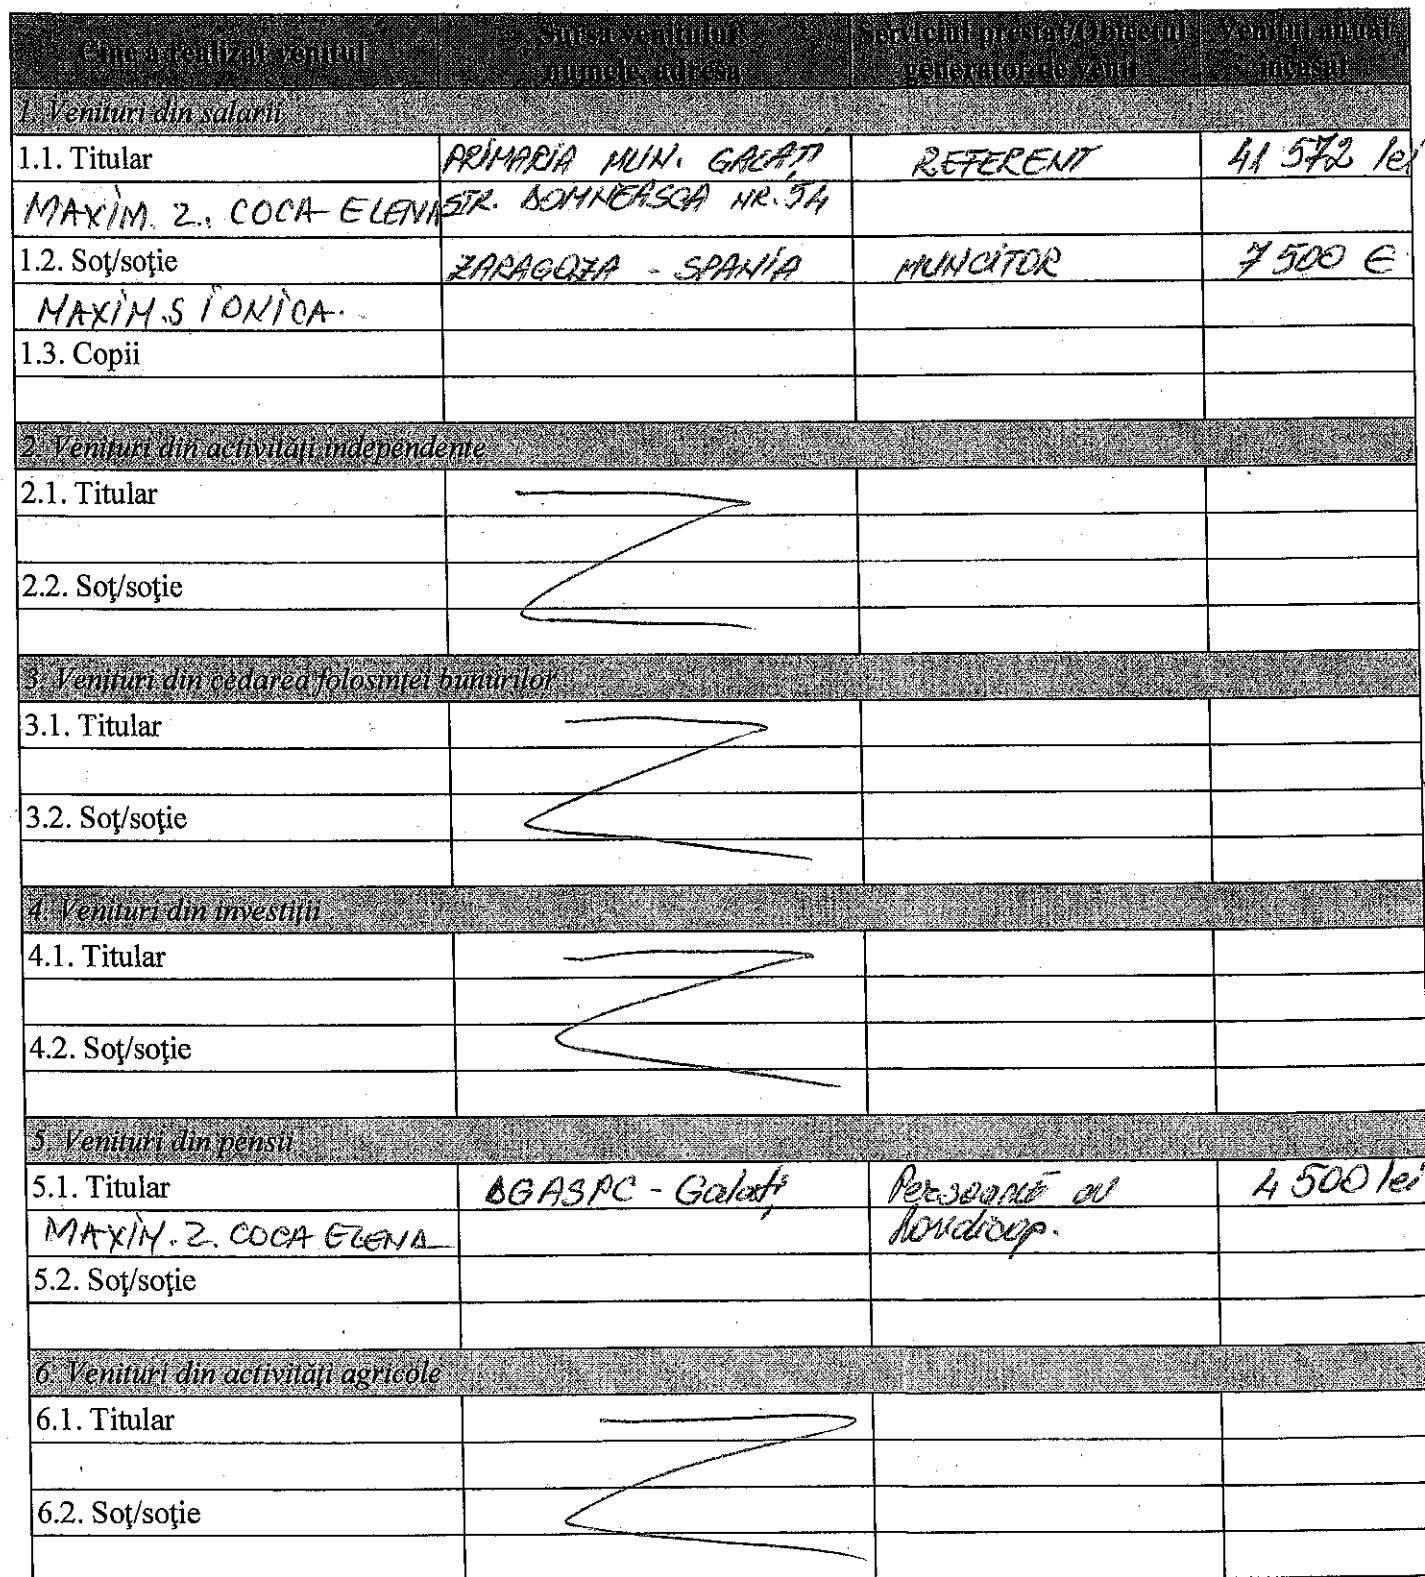 Cine a realizat venitul
Sursa venitului: numele, adresa
Serviciul prestat/Obiectul generator de venit
Venitul anual încasat
1. Venituri din salarii
1.1. Titular PRIMARIA MUN. GALAȚI REFERENT 41 572 lei
MAXIM. Z. COCA ELENA STR. DOMNEASCA NR. 54
1.2. Soţ/soţie ZARAGOZA - SPANIA MUNCITOR 7 500 €
MAXIM.S IONICA.
1.3. Copii
2. Venituri din activităţi independente
2.1. Titular
2.2. Soţ/soţie
3. Venituri din cedarea folosinţei bunurilor
3.1. Titular
3.2. Soţ/soţie
4. Venituri din investiţii
4.1. Titular
4.2. Soţ/soţie
5. Venituri din pensii
5.1. Titular DGASPC - Galați Persoană cu 4 500 lei
MAXIM. Z. COCA ELENA handicap.
5.2. Soţ/soţie
6. Venituri din activităţi agricole
6.1. Titular
6.2. Soţ/soţie